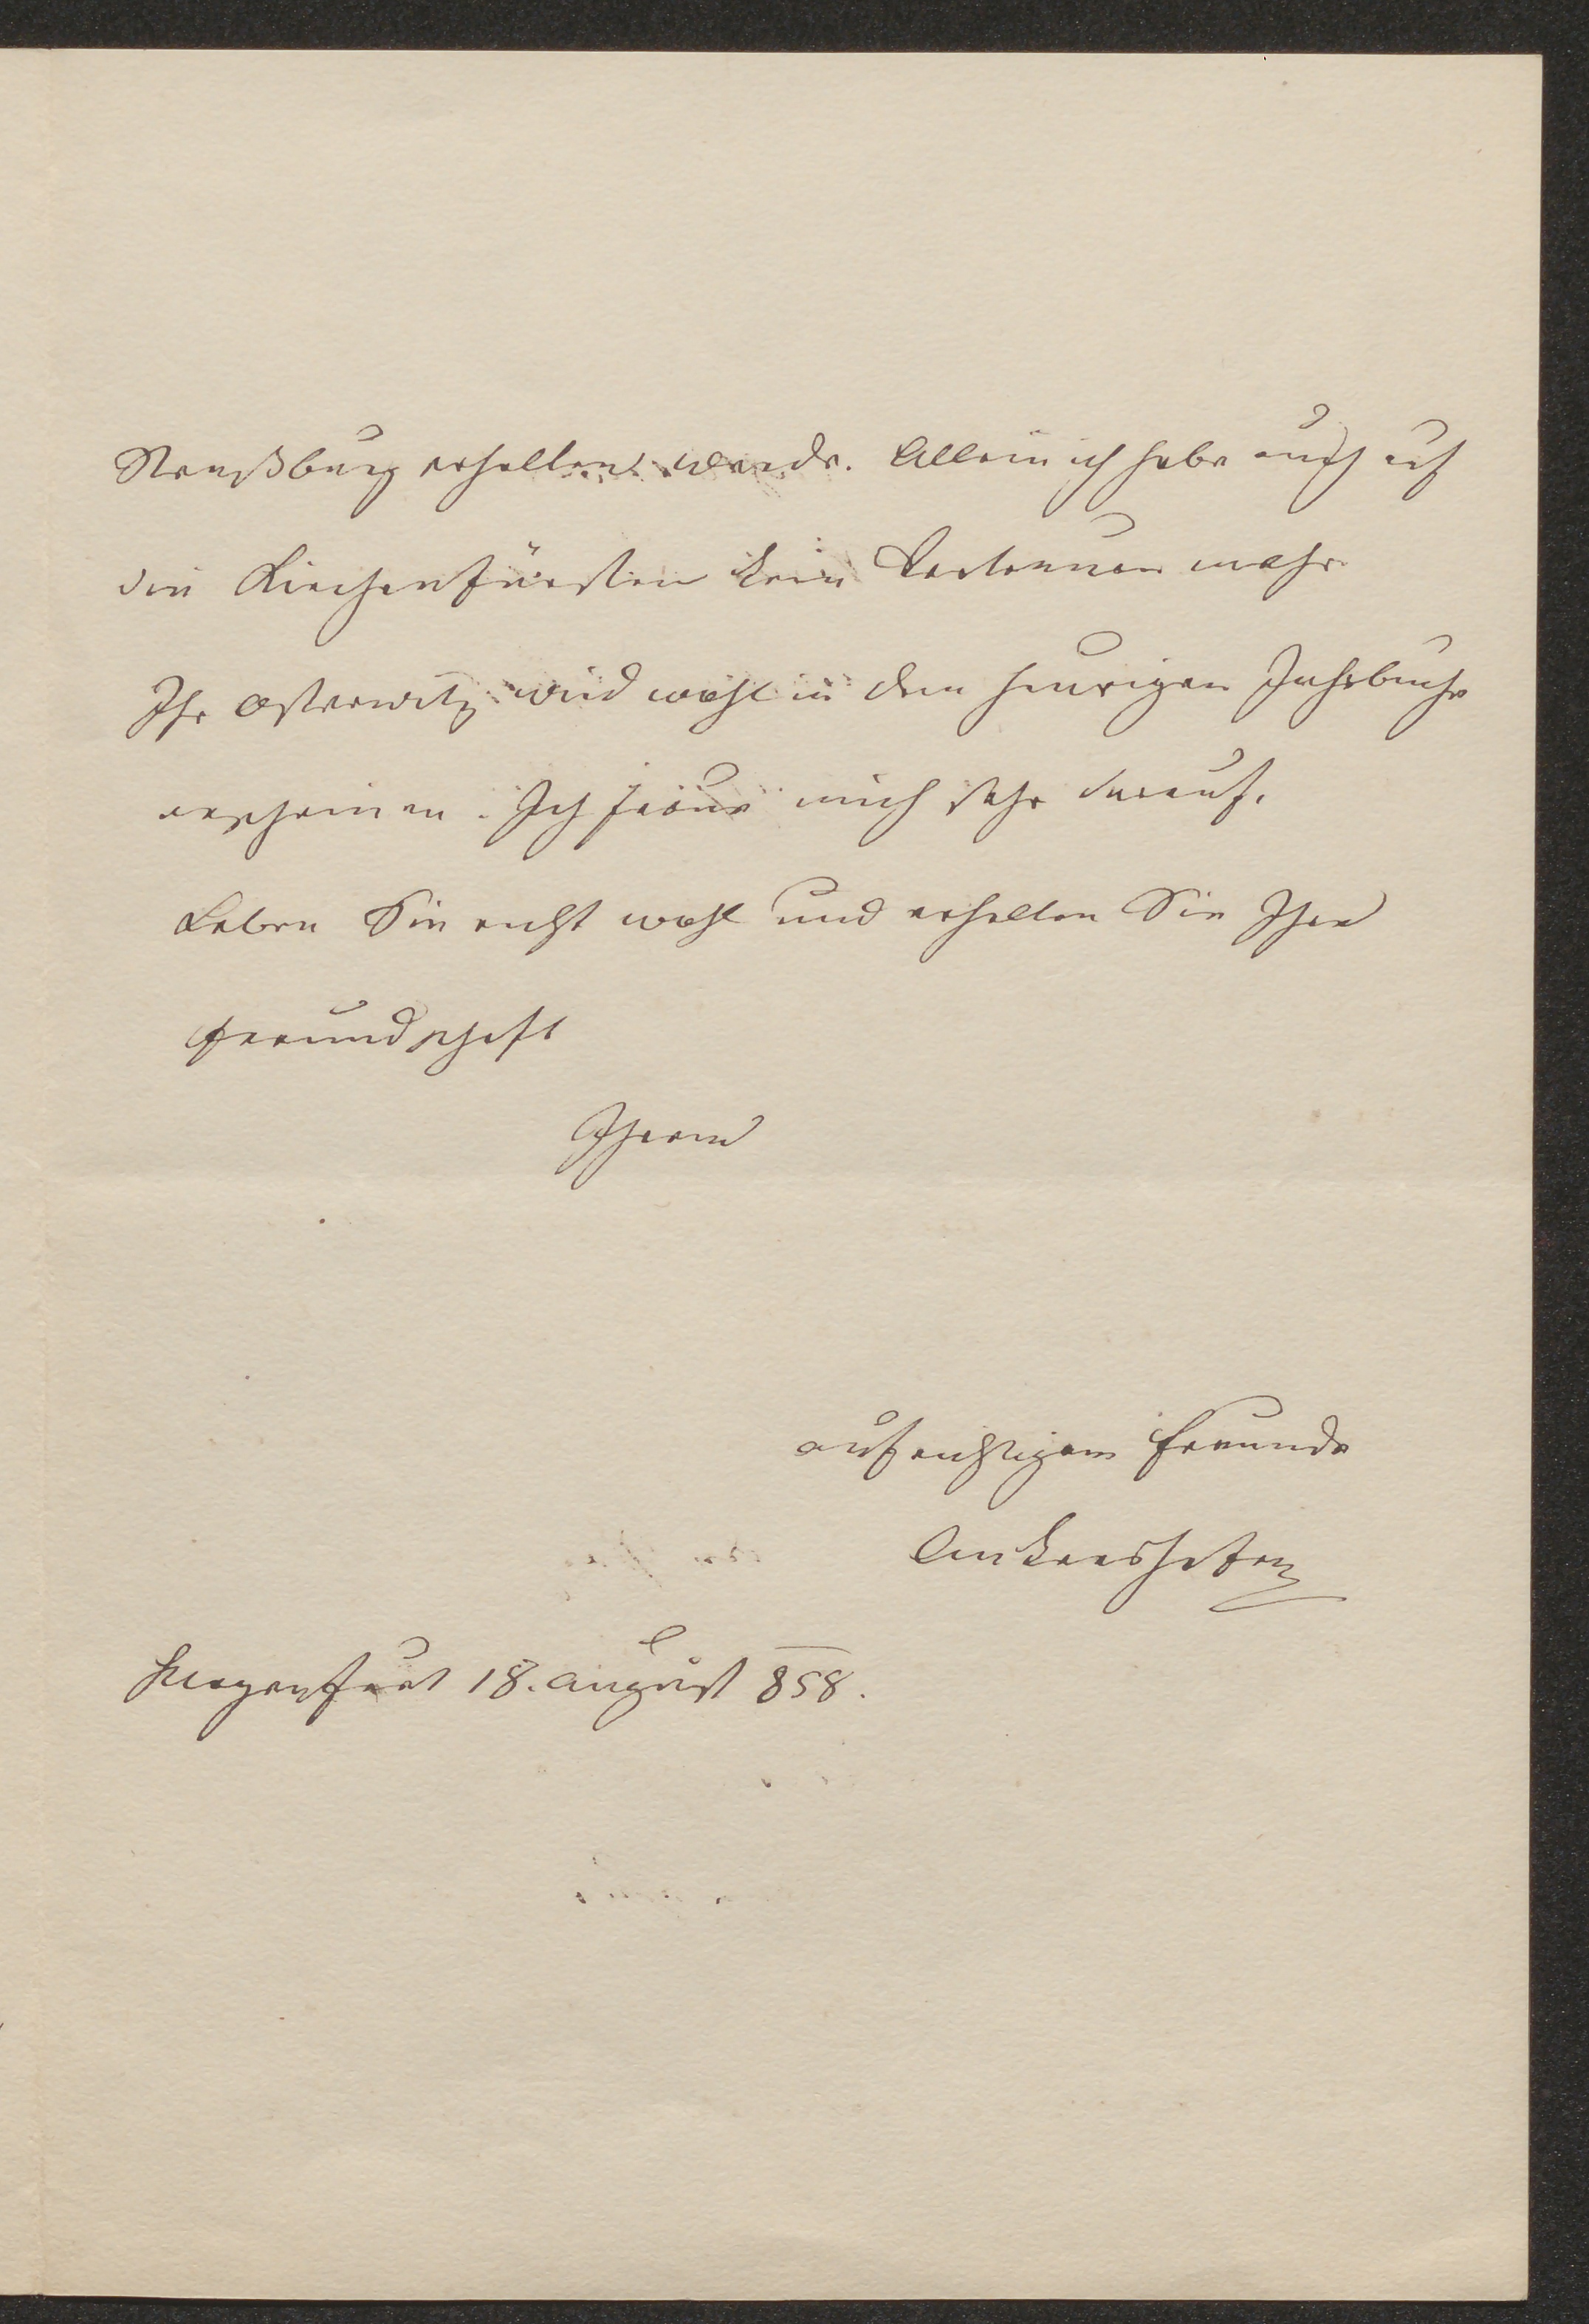 Straßburg erhalten werde. Allein ich habe auch auf
die Kirchenfürsten kein Vertrauen mehr.
Ihr Osterwitz wird wohl in dem heurigen Jahrbuche
erscheinen. Ich freue mich sehr darauf.
Leben Sie recht wohl und erhalten Sie Ihre
Freundschaft
Ihrem
aufrichtigem Freunde
Ankershofen
Klagenfurt 18. August 858.